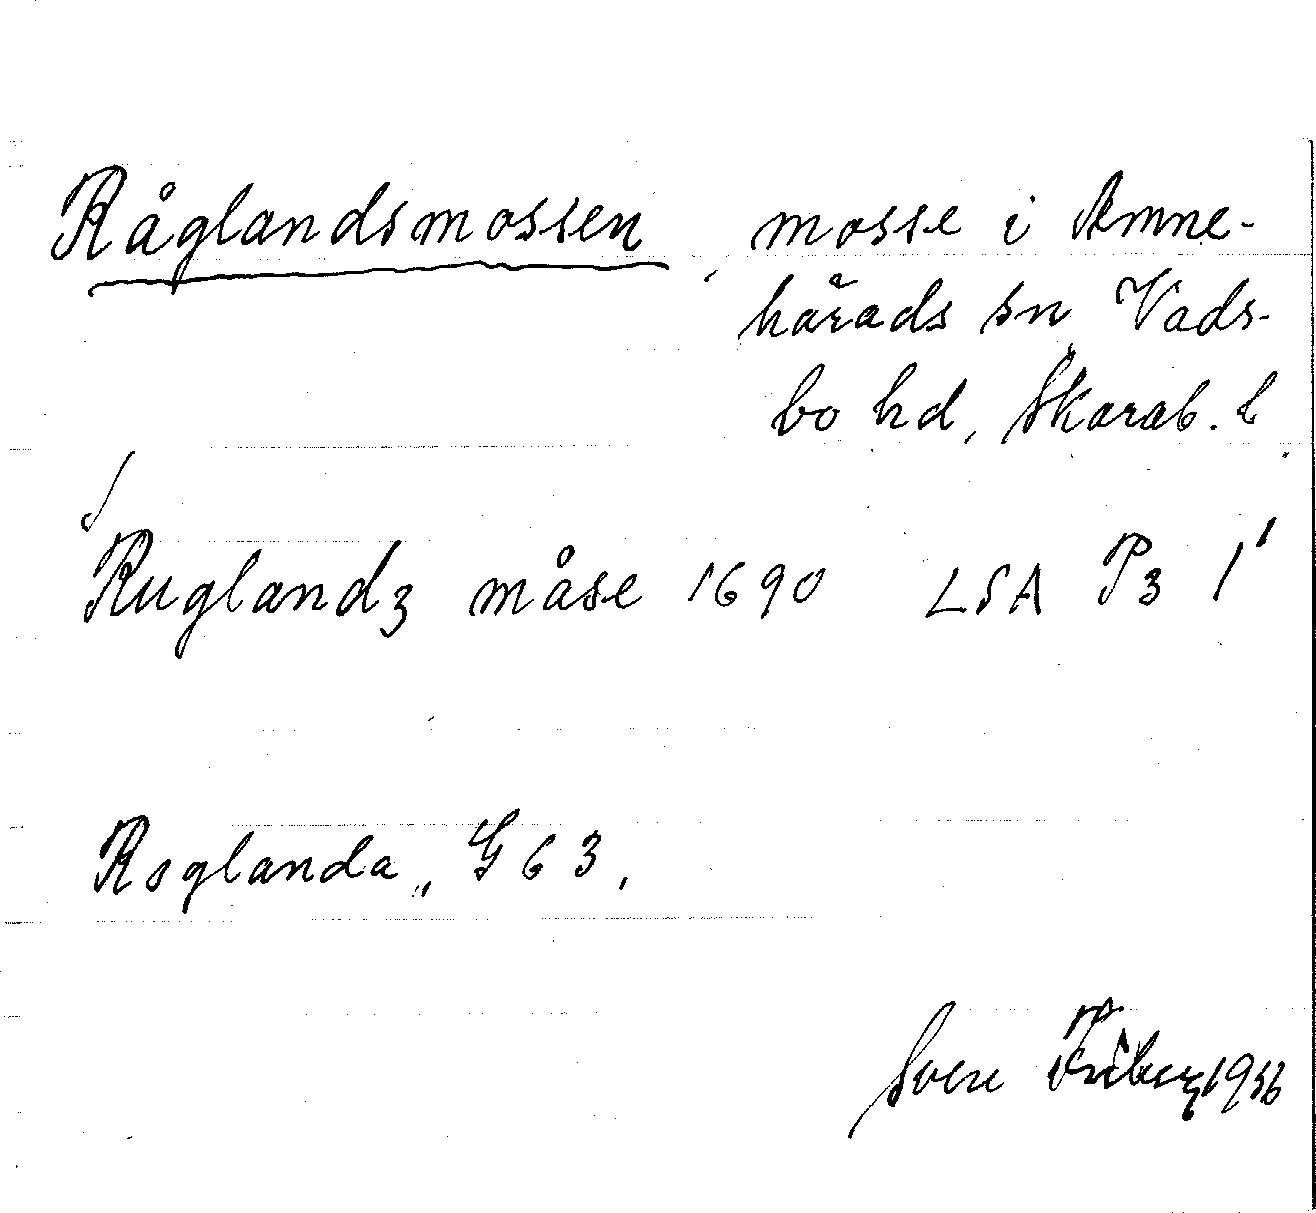 Råglandsmossen, mosse i Amne-
härads sn, Vads-
bo hd, Skarab. l
Ruglandz måse 1690 LSA P3 1¹
Roglanda „ G 63,
Sven Friberg 1956